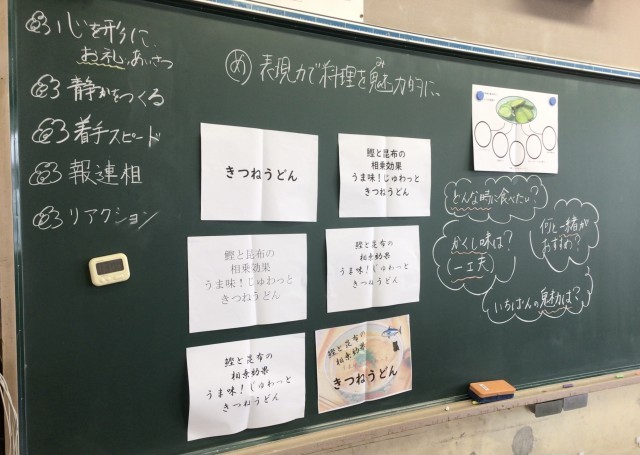 心を形に、
お礼、あいさつ
静かをつくる
着手スピード
報連相
リアクション
め 表現力で料理を魅力的に。
み
きつねうどん
鰹と昆布の
相乗効果
うま味！じゅわっと
きつねうどん
鰹と昆布の
相乗効果
うま味！じゅわっと
きつねうどん
鰹と昆布の
相乗効果
うま味！じゅわっと
きつねうどん
鰹と昆布の
相乗効果
うま味！じゅわっと
きつねうどん
鰹と昆布の
相乗効果
きつねうどん
どんな時に食べたい？
かくし味は？
一工夫
何と一緒が
おすすめ？
いちばんの魅力は？